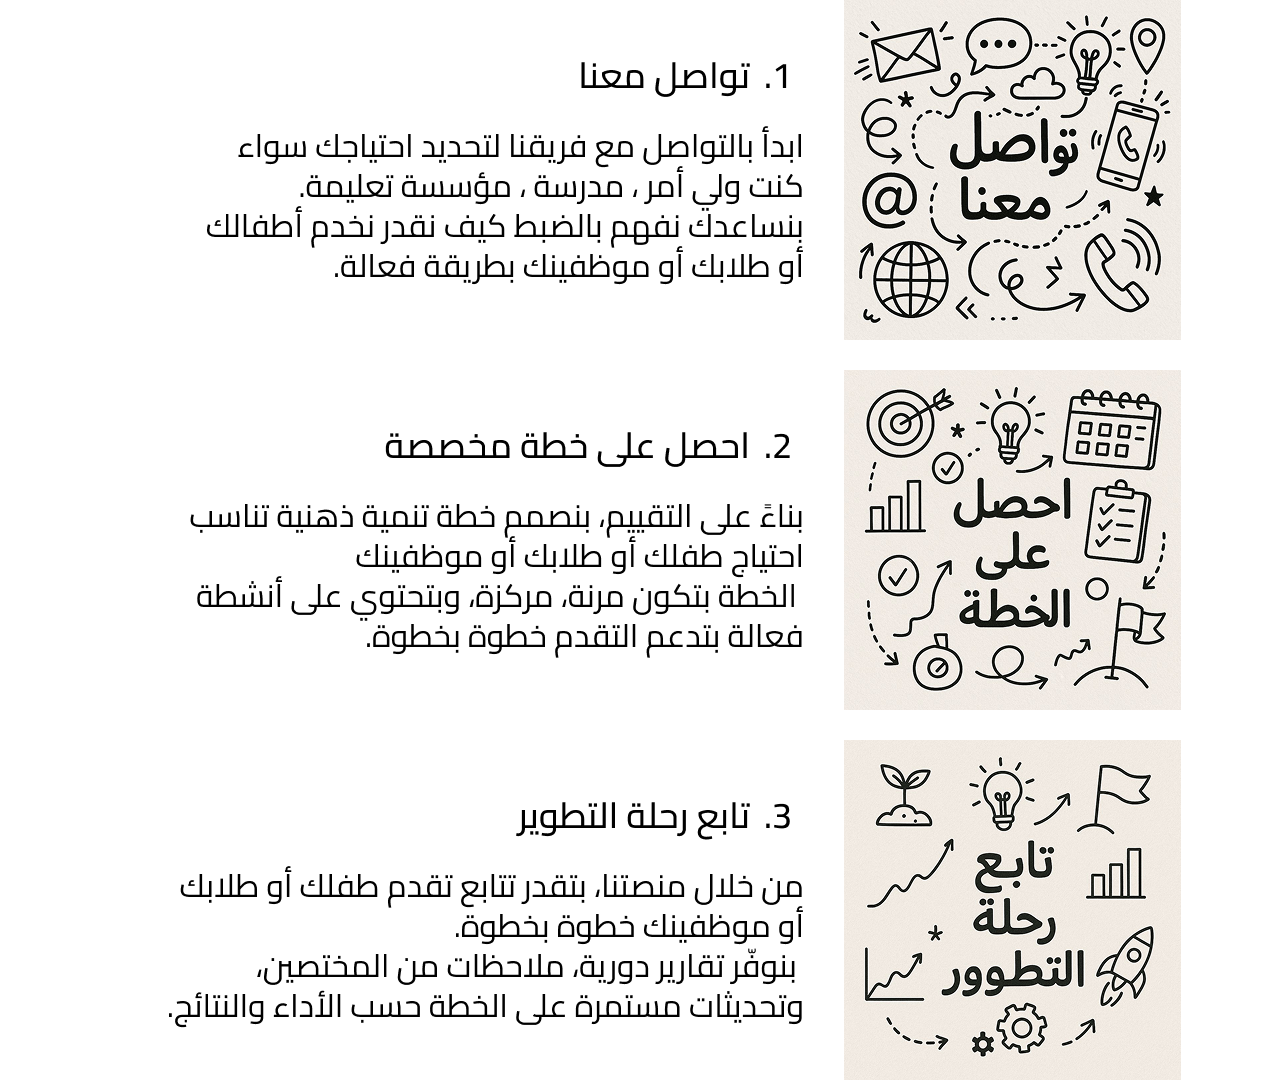 تواصل
معنا
1. تواصل معنا
ابدأ بالتواصل مع فريقنا لتحديد احتياجك سواء
كنت ولي أمر ، مدرسة ، مؤسسة تعليمة.
بنساعدك نفهم بالضبط كيف نقدر نخدم أطفالك
أو طلابك أو موظفينك بطريقة فعالة.
احصل
على
الخطة
2. احصل على خطة مخصصة
بناءً على التقييم، بنصمم خطة تنمية ذهنية تناسب
احتياج طفلك أو طلابك أو موظفينك
الخطة بتكون مرنة، مركزة، وبتحتوي على أنشطة
فعالة بتدعم التقدم خطوة بخطوة.
تابع
رحلة
التطوور
3. تابع رحلة التطوير
من خلال منصتنا، بتقدر تتابع تقدم طفلك أو طلابك
أو موظفينك خطوة بخطوة.
بنوفّر تقارير دورية، ملاحظات من المختصين،
وتحديثات مستمرة على الخطة حسب الأداء والنتائج.